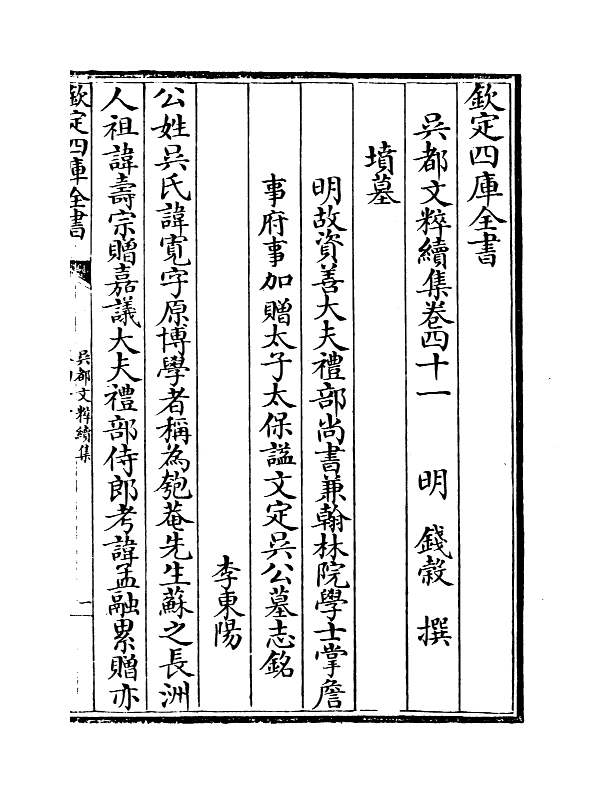 欽定四庫全書
吳都文粹續集卷四十一　明　錢榖　撰
墳墓
明故資善大夫禮部尚書兼翰林院學士掌詹
事府事加贈太子太保諡文定吳公墓志銘
李東陽
公姓吳氏諱寛字原博學者稱為匏菴先生蘇之長洲
人祖諱壽宗贈嘉議大夫禮部侍郎考諱孟融累贈亦
欽定四庫全書
吳都文粹續集
一